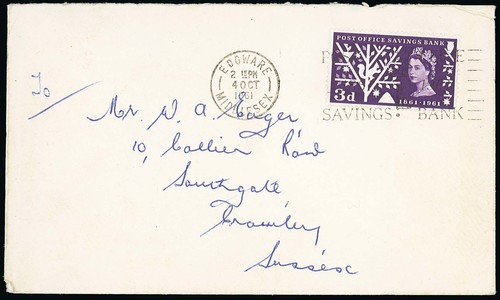 POST OFFICE SAVINGS BANK
3d
1861-1961
EDGWARE
2 15 PM
4 OCT
1961
MIDDLESEX
SAVINGS BANK
To
Mr. W. A. Eager
10, Collier Road
Southgate
Crawley
Sussex